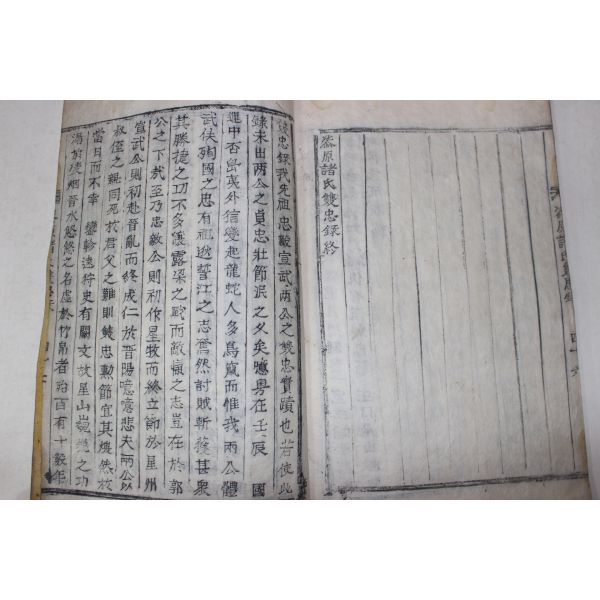 漆原諸氏雙忠錄終
雙忠錄我先祖忠敏宣武兩公之雙忠實蹟也若使此
錄未出兩公之貞忠壯節泯之久矣噫粤在壬辰 國
運中否島夷外猘變起龍蛇人多鳥竄而惟我兩公體
武侯殉國之忠有祖逖誓江之志奮然討賊斬獲甚衆
其勝捷之功不多讓露梁之戰而敵愾之志豈在於郭
公之下哉至乃忠敏公則初作星牧而終立節於星州
宣武公則初赴晉亂而終成仁於晉陽噫噫悲夫兩公以
叔侄之親同死於君父之難則雙忠勳節宜其煥然於
當日而不幸 鑾輿遠狩史有闕文故星山之功
湯於陵烟晉水悠悠之名虛於竹帛者殆百有十數年